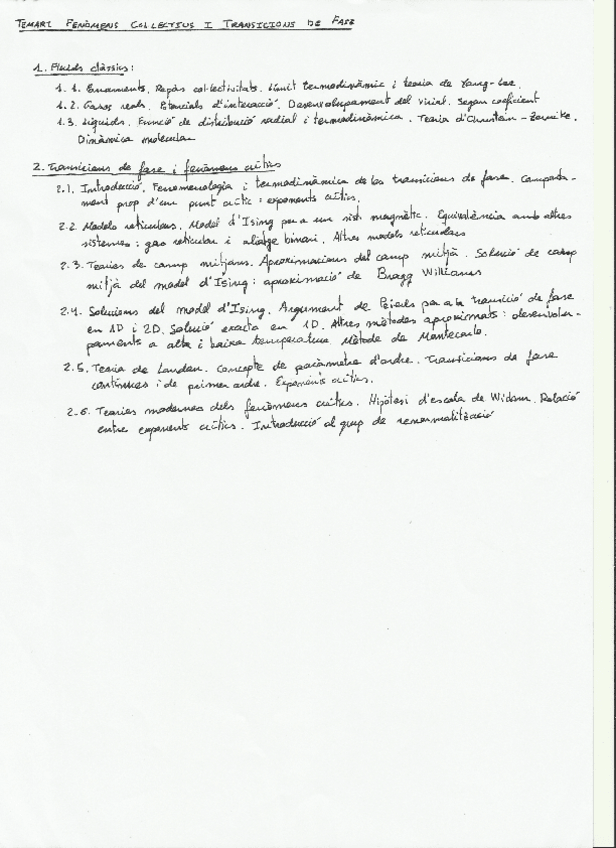 TEMARI FENÒMENS COL·LECTIUS I TRANSICIONS DE FASE
1. Fluids clàssics:
1.1. Repàs col·lectivitats. Límit termodinàmic i teoria de Yang-Lee.
1.2. Gasos reals. Potencials d'interacció. Desenvolupament del virial. Segon coeficient
1.3. Líquids. Funció de distribució radial i termodinàmica. Teoria d'Ornstein-Zernike.
Dinàmica molecular
2. Transicions de fase i fenòmens crítics
2.1. Introducció. Fenomenologia i termodinàmica de les transicions de fase. Comporta-
ment prop d'un punt crític: exponents crítics.
2.2 Models reticulars. Model d'Ising per a un sist. magnètic. Equivalència amb altres
sistemes: gas reticular i aliatge binari. Altres models reticulars
2.3. Teories de camp mitjans. Aproximacions del camp mitjà. Solució de camp
mitjà del model d'Ising: aproximació de Bragg Williams
2.4. Solucions del model d'Ising. Argument de Peierls per a la transició de fase
en 1D i 2D. Solució exacta en 1D. Altres mètodes aproximats: desenvolu-
paments a alta i baixa temperatura. Mètode de Montecarlo.
2.5. Teoria de Landau. Concepte de paràmetre d'ordre. Transicions de fase
contínues i de primer ordre. Exponents crítics.
2.6. Teories modernes dels fenòmens crítics. Hipòtesi d'escala de Widom. Relació
entre exponents crítics. Introducció al grup de renormalització